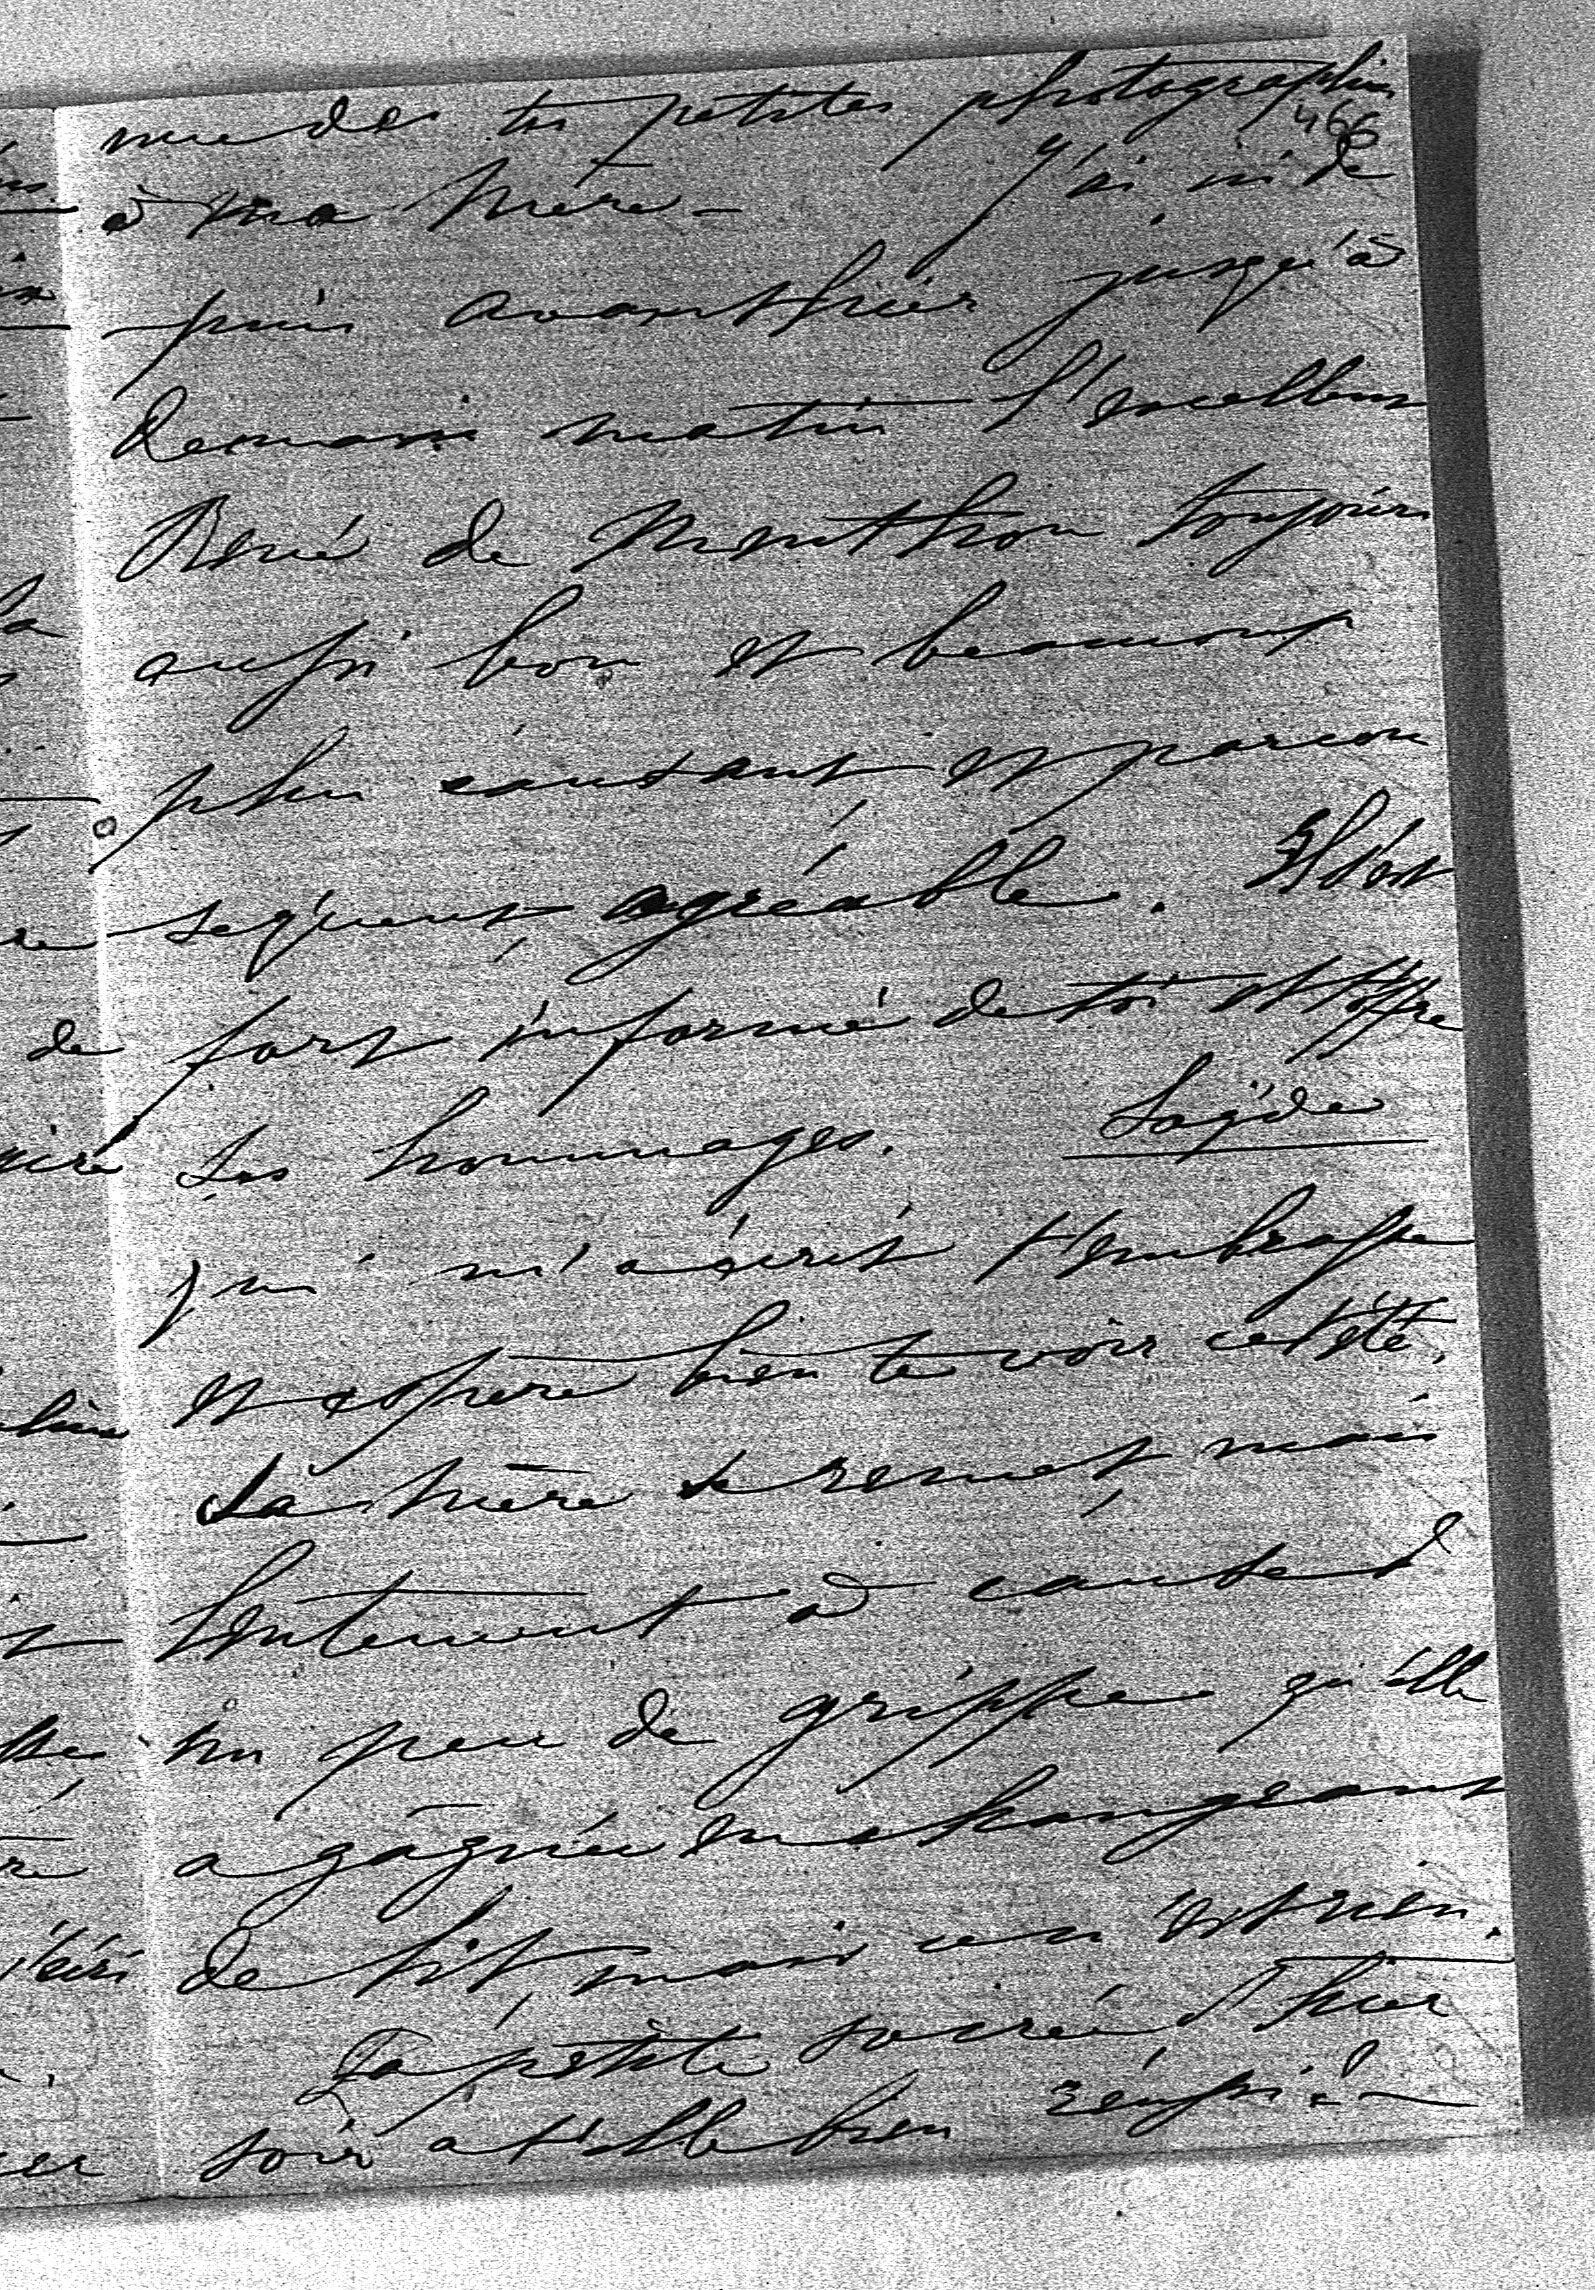 une de tes petites photographies
466
à ma mère — J'ai ici de
puis avant hier jusqu'à
demain matin l'excellent
René de Menthon toujours
aussi bon et beaucoup
plus causant et par con
séquent agréable. Il s'est
fort informé de toi et t'offre
ses hommages. Loÿde
qui m'a écrit t'embrasse
et espère bien te voir cet été.
Sa mère se remet, mais
lentement à cause d'
un peu de grippe qu'elle
a gagnée en changeant
de lit, mais ce n'est rien.
La petite soirée d'hier
soir a t'elle bien réussi ? —